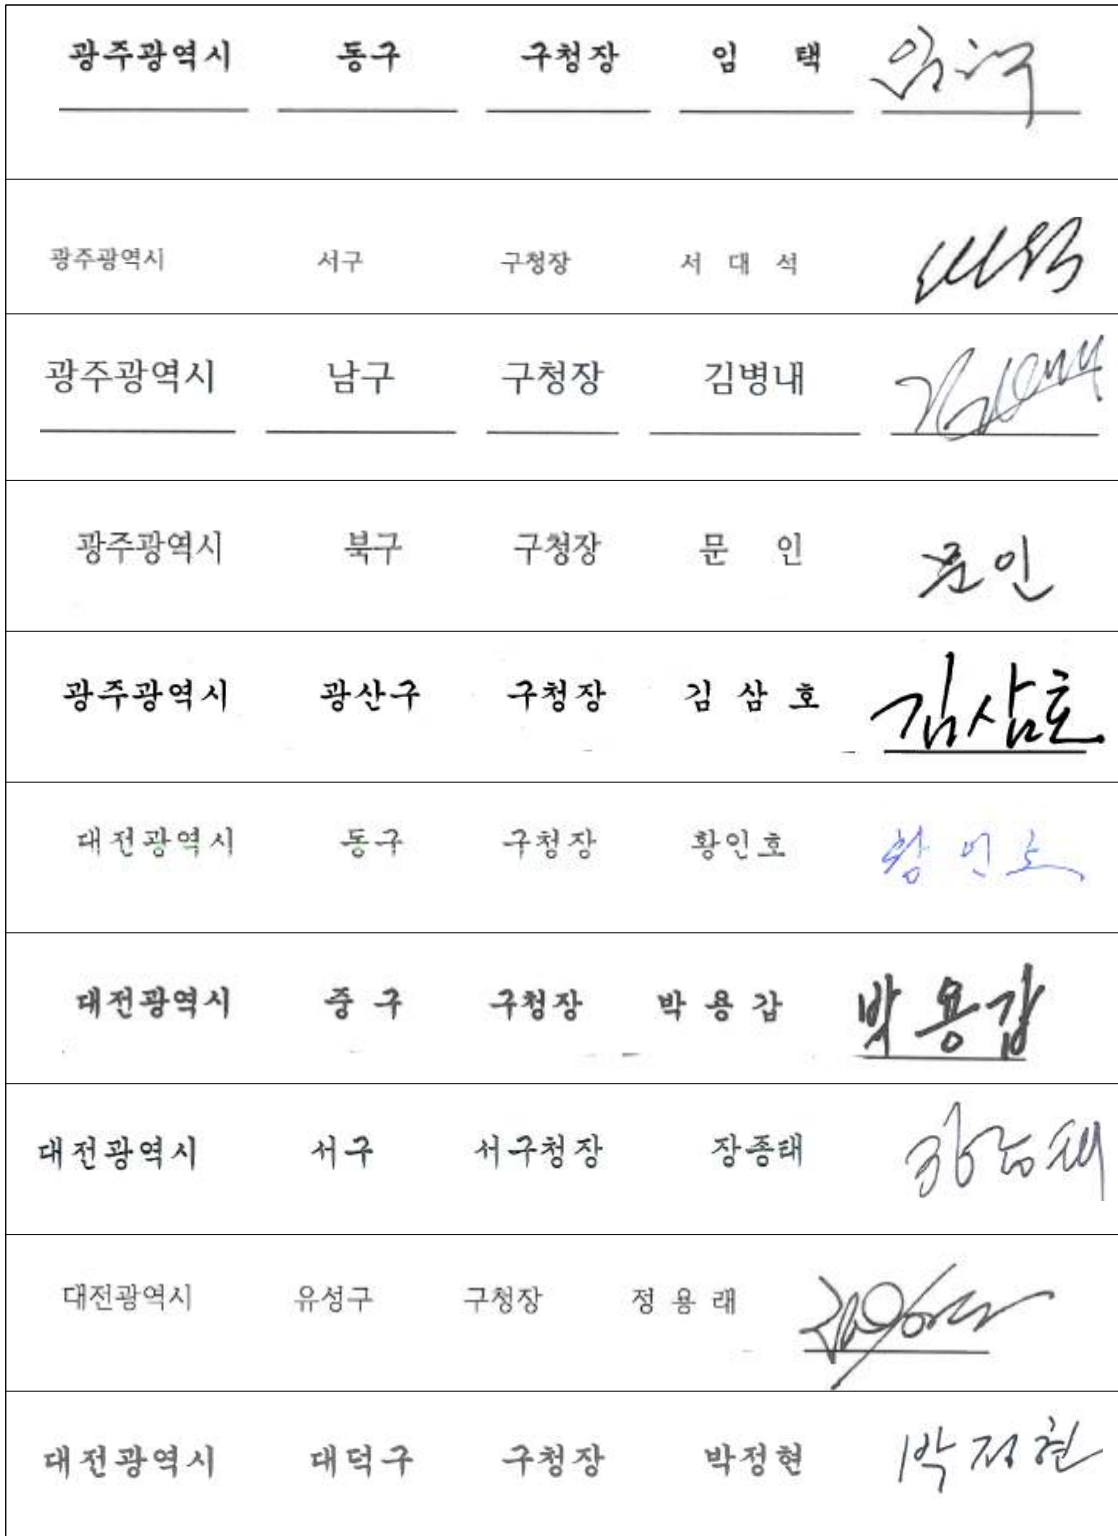 광주광역시 동구 구청장 임 택
광주광역시 서구 구청장 서 대 석
광주광역시 남구 구청장 김병내
광주광역시 북구 구청장 문 인 문인
광주광역시 광산구 구청장 김 삼 호 김삼호
대전광역시 동구 구청장 황인호 황인호
대전광역시 중 구 구청장 박 용 갑 박용갑
대전광역시 서구 서구청장 장종태
대전광역시 유성구 구청장 정 용 래
대전광역시 대덕구 구청장 박정현 박정현